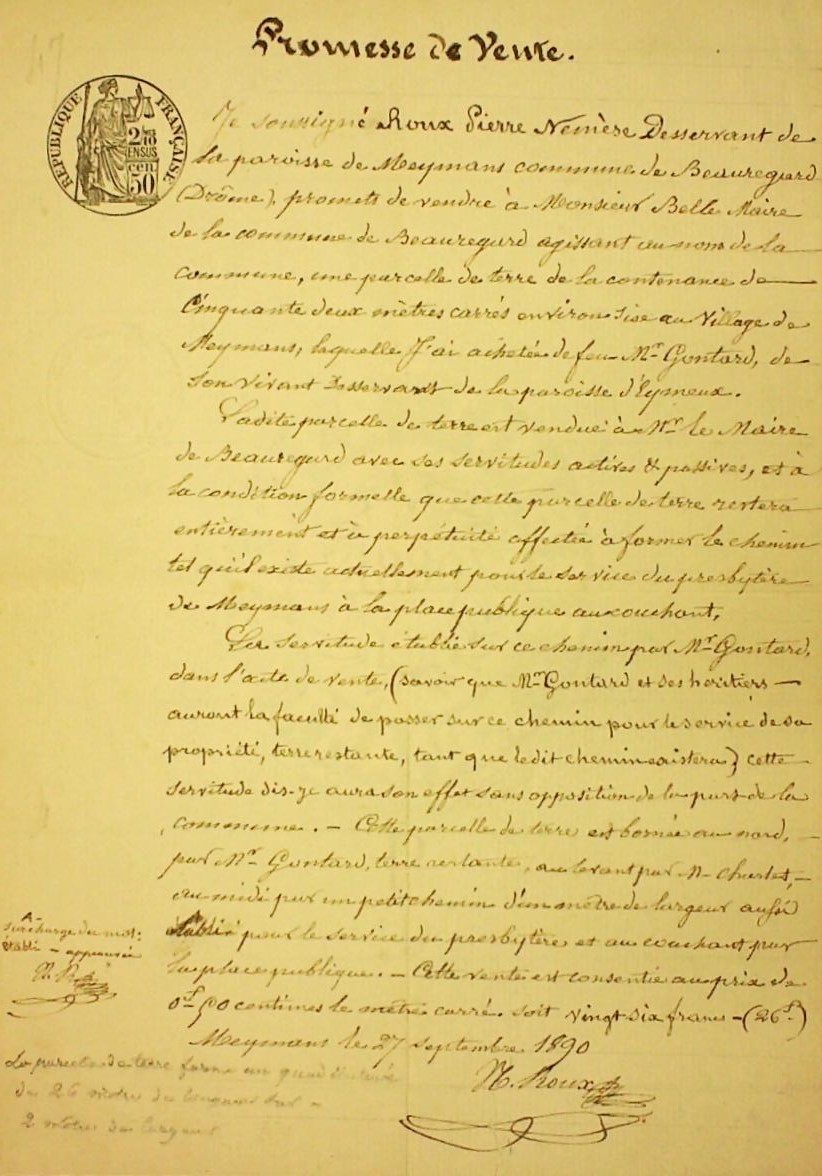 Promesse de Vente.
RÉPUBLIQUE FRANÇAISE
2/10
EN SUS
50 cen
Je soussigné Roux Pierre Nemèse Desservant de
la paroisse de Meymans commune de Beauregard
(Drôme), promets de vendre à Monsieur Belle Maire
de la commune de Beauregard agissant au nom de la
commune, une parcelle de terre de la contenance de
Cinquante deux mètres carrés environ sise au Village de
Meymans, laquelle J'ai achetée de feu Mr Gontard, de
son vivant Desservant de la paroisse d'Eymeux.
Ladite parcelle de terre est vendue à Mr le Maire
de Beauregard avec ses servitudes actives & passives, et à
la condition formelle que cette parcelle de terre restera
entièrement et à perpétuité affectée à former le chemin
tel qu'il existe actuellement pour le service du presbytère
de Meymans à la place publique au couchant.
La servitude établie sur ce chemin par Mr Gontard,
dans l'acte de vente, (savoir que Mr Gontard et ses héritiers
auront la faculté de passer sur ce chemin pour le service de sa
propriété, terre restante, tant que ledit chemin existera) cette
servitude dis-je aura son effet sans opposition de la part de la
commune. — Cette parcelle de terre est bornée au nord,
par Mr Gontard, terre restante, au levant par Mr Charlet,
au midi par un petit chemin d'un mètre de largeur aussi
établi pour le service du presbytère et au couchant par
la place publique. — Cette vente est consentie au prix de
0f 50 centimes le mètre carré. soit vingt six francs — (26f)
Meymans le 27 septembre 1890
N. Roux
surcharge du mot:
établi — approuvée
N. R
La parcelle de terre forme un
de 26 mètres de longueur sur
2 mètres de largeur